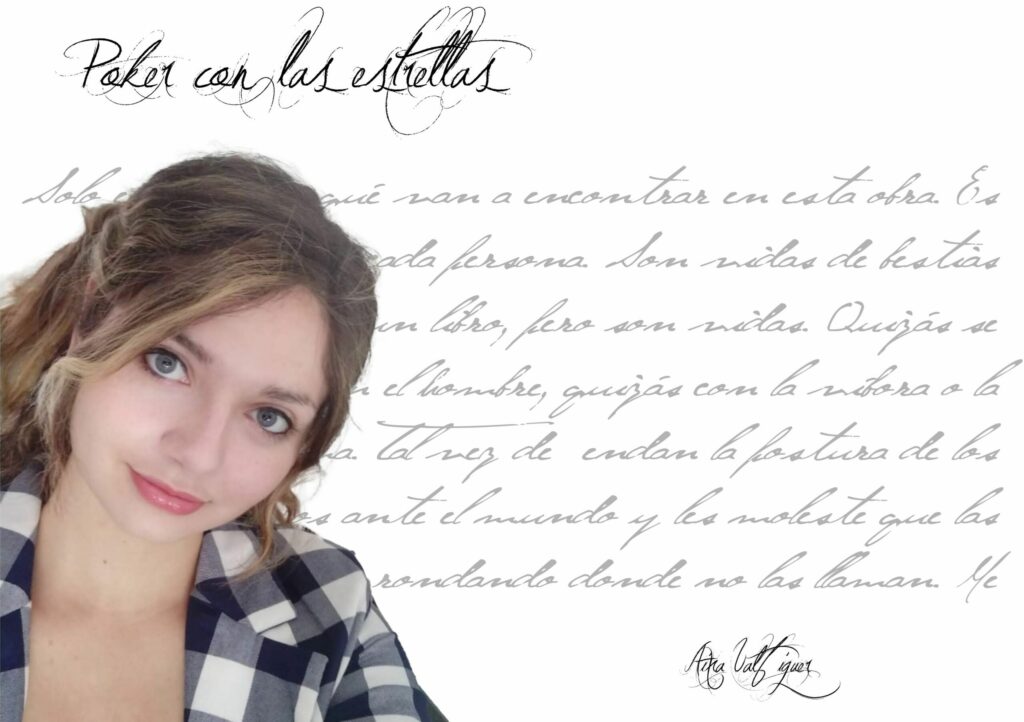 Poker con las estrellas
Solo qué van a encontrar en esta obra. Es
ada persona. Son vidas de bestias
un libro, pero son vidas. Quizás se
n el hombre, quizás con la víbora o la
na. Tal vez de endan la postura de los
os ante el mundo y les moleste que las
rondando donde no las llaman. Me